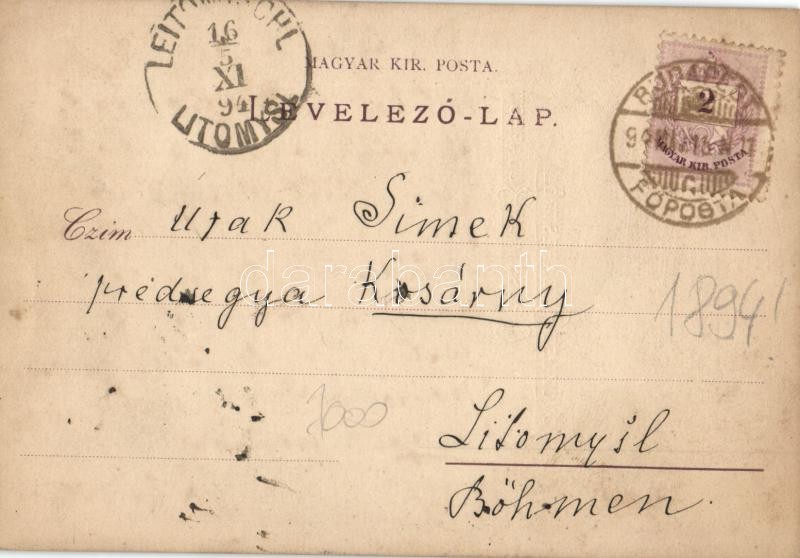 LEITOMISCHL
16
5
XI
94
LITOMYŠL
MAGYAR KIR. POSTA.
LEVELEZŐ-LAP.
BUDAPEST
2
MAGYAR KIR. POSTA
FŐPOSTA
Czim Urak Simek
Kosárny
darabanth
1894
7000
Litomyšl
Böhmen.